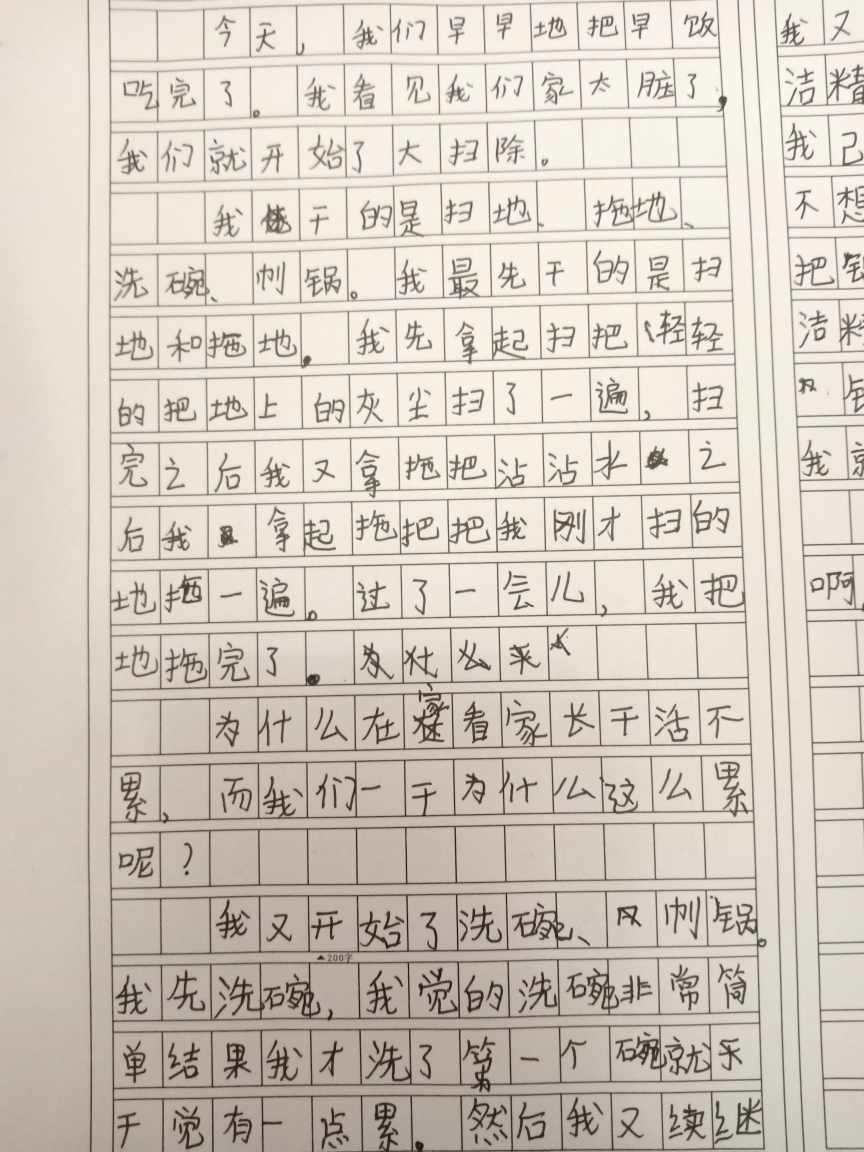 今天，我们早早地把早饭
吃完了。我看见我们家太脏了，
我们就开始了大扫除。
我干的是扫地、拖地、
洗碗、刷锅。我最先干的是扫
地和拖地。我先拿起扫把轻轻
的把地上的灰尘扫了一遍，扫
完之后我又拿拖把沾沾水之
后我拿起拖把把我刚才扫的
地拖一遍。过了一会儿，我把
地拖完了。
为什么在家看家长干活不
累，而我们一干为什么这么累
呢？
我又开始了洗碗、刷锅。
▲200字
我先洗碗，我觉的洗碗非常简
单结果我才洗了第一个碗就
干觉有一点累。然后我又续继
我又
洁精
我己
不想
把锅
洁精
锅
我就
啊，